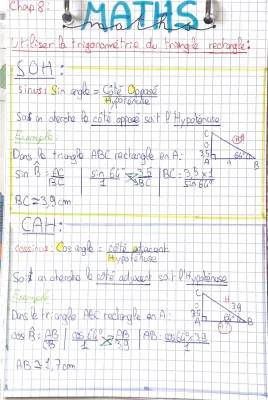 Chap 8: MATHS
maths
Utiliser la trigonométrie du triangle rectangle:
SOH:
sinus: Sin angle = Côté Opposé / Hypoténuse
Soit on cherche le côté opposé soit l'Hypoténuse
Exemple:
Dans le triangle ABC rectangle en A:
sin B̂ = AC/BC | sin 64°/1 = 3,5/BC | BC = 3,5 × 1 / sin 64°
BC ≃ 3,9 cm
C
O
3,5
A
A
64°
B
CAH:
cossinus: Cos angle = côté adjacent / Hypoténuse
Soit on cherche le côté adjacent soit l'Hypoténuse
Exemple
Dans le triangle ABC rectangle en A:
cos B̂ = AB/CB | cos 64°/1 = AB/3,9 | AB = cos 64° × 3,9 / 1
AB ≃ 1,7 cm
C
H
3,9
O
A
A
B